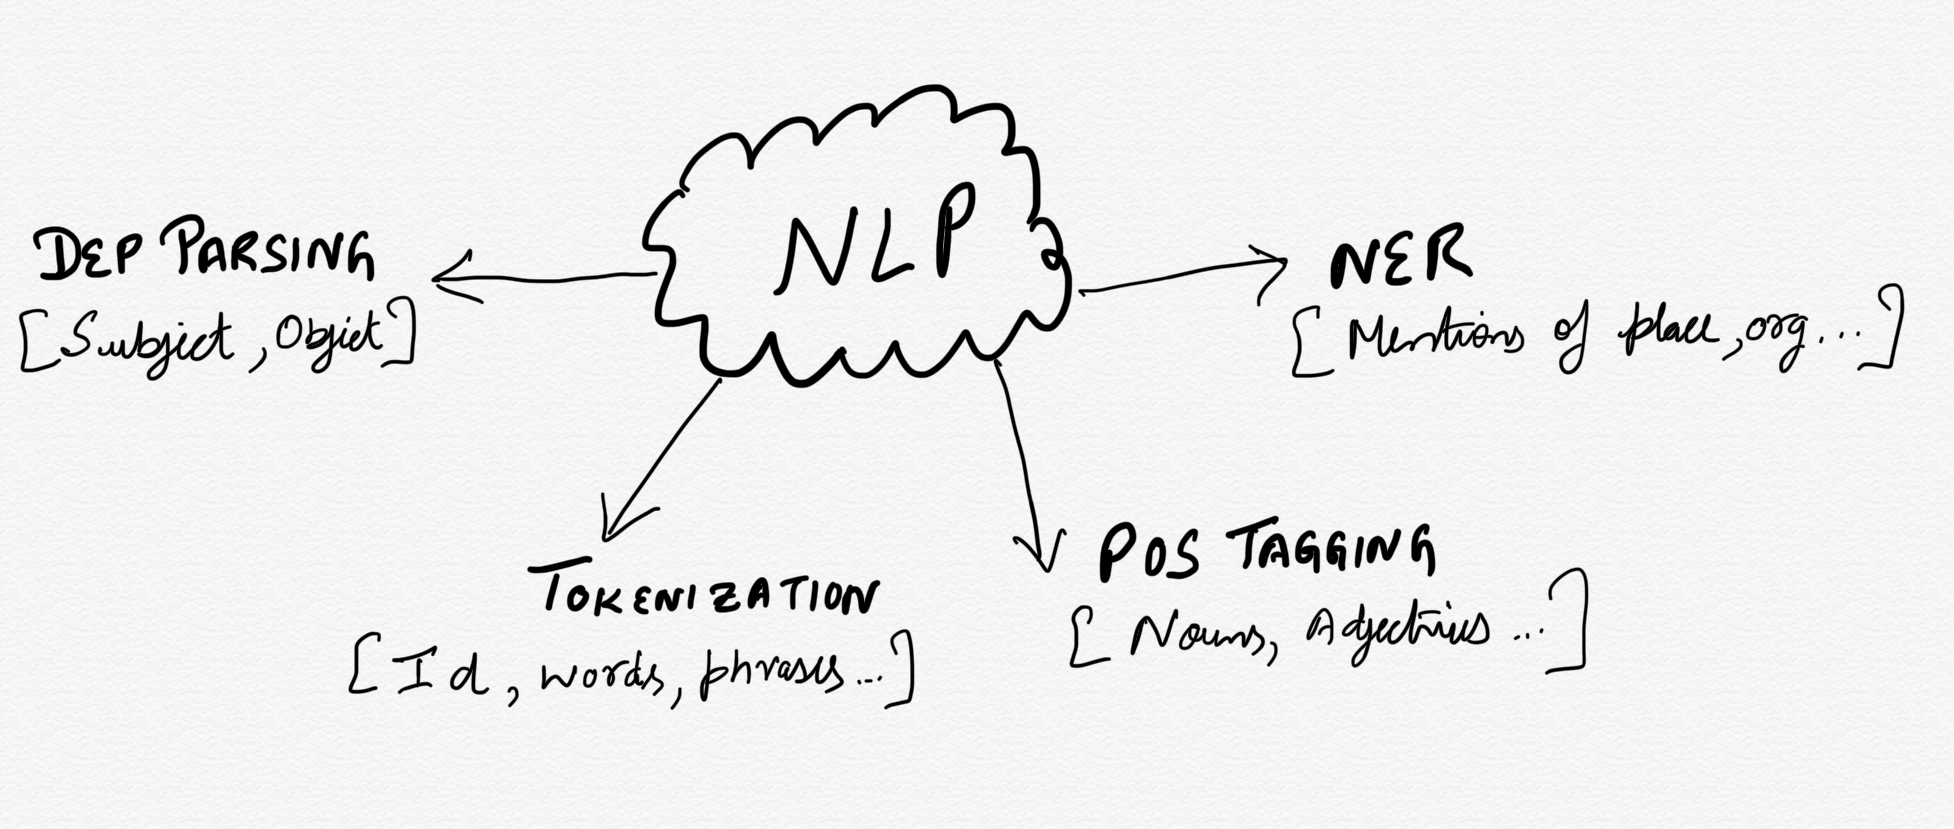 NLP
DEP PARSING
[Subject, Object]
NER
[Mentions of place, org...]
TOKENIZATION
[Id, words, phrases...]
POS TAGGING
[Nouns, Adjectives...]